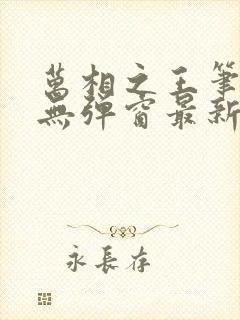 萬相之王筆
無彈窗最新
永長存